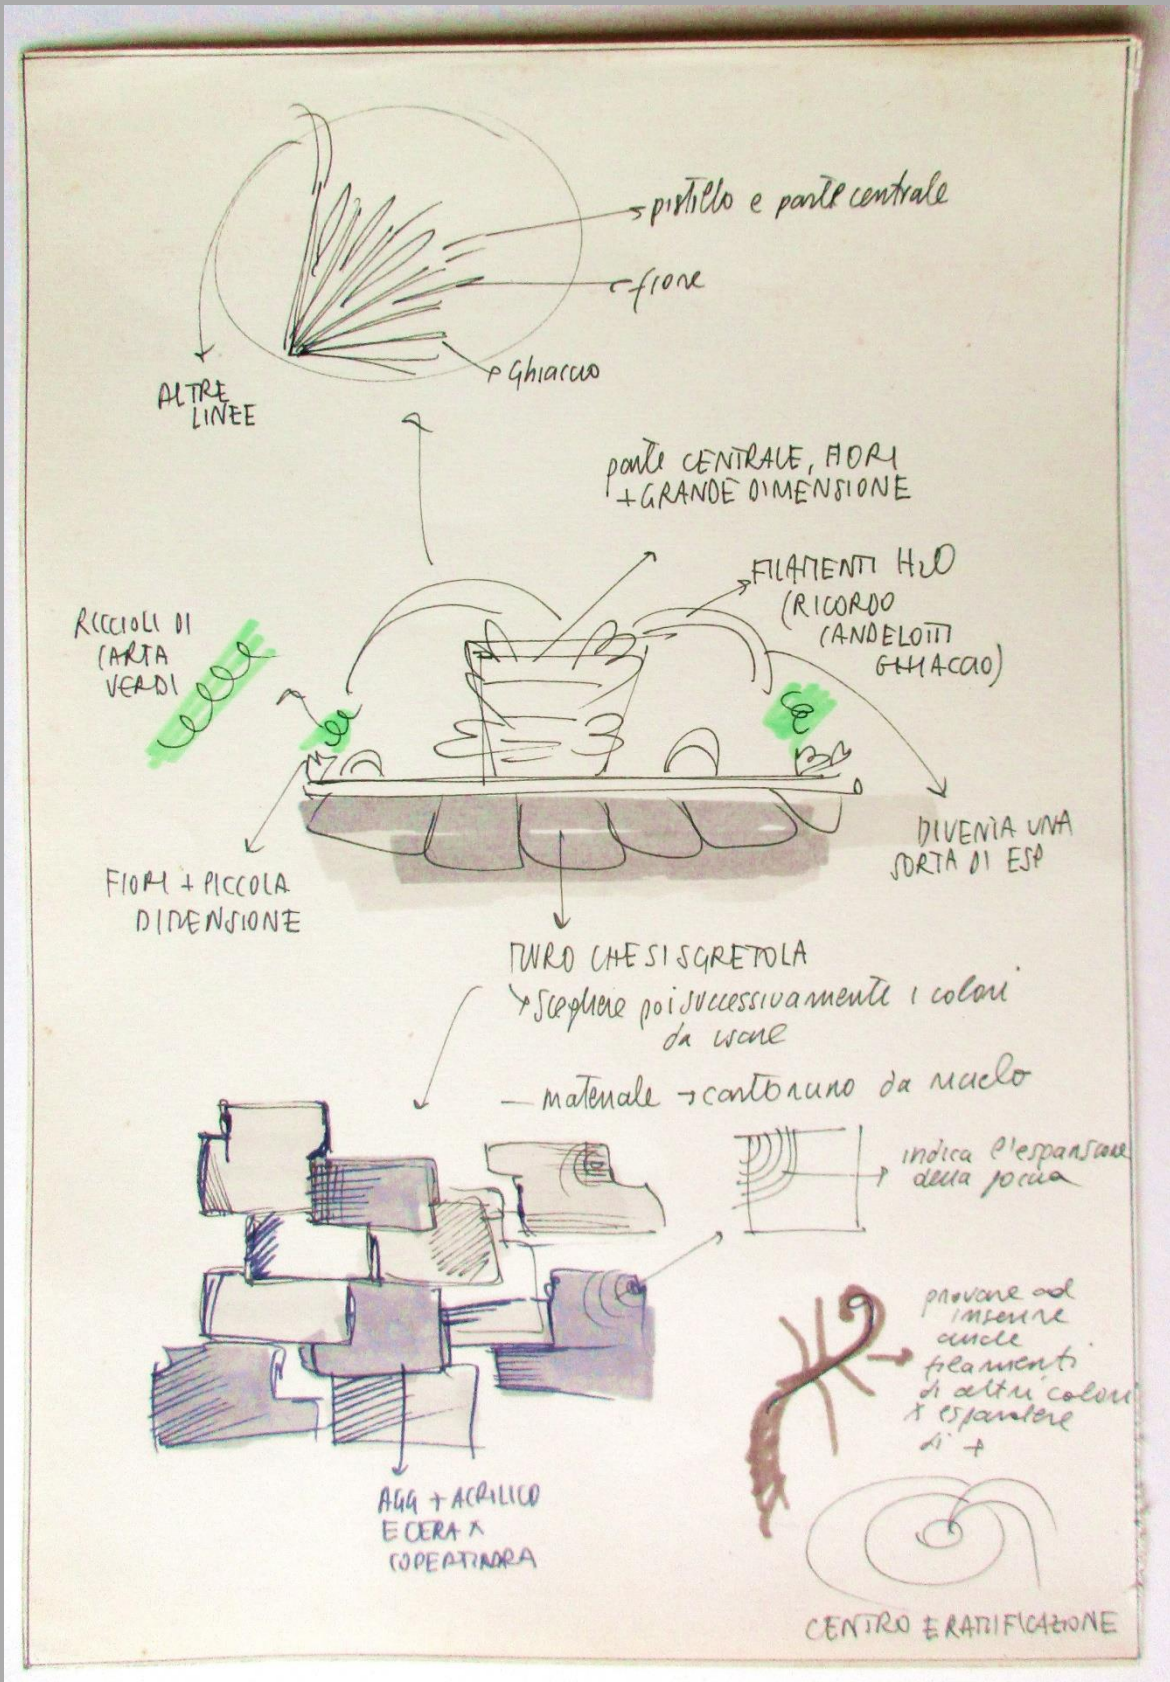 pistillo e parte centrale
fiore
Ghiaccio
ALTRE
LINEE
parte CENTRALE, FIORI
+ GRANDE DIMENSIONE
FILAMENTI H2O
(RICORDO
CANDELOTTI
GHIACCIO)
RICCIOLI DI
CARTA
VERDI
DIVENTA UNA
SORTA DI ESP
FIORI + PICCOLA
DIMENSIONE
MURO CHE SI SGRETOLA
scegliere poi successivamente i colori
da usare
— materiale → cartoncino da
indica l'espansione
della
provare ad
inserire
anche
filamenti
di altri colori
x espandere
di +
AGG + ACRILICO
E CERA X
CENTRO E RAMIFICAZIONE